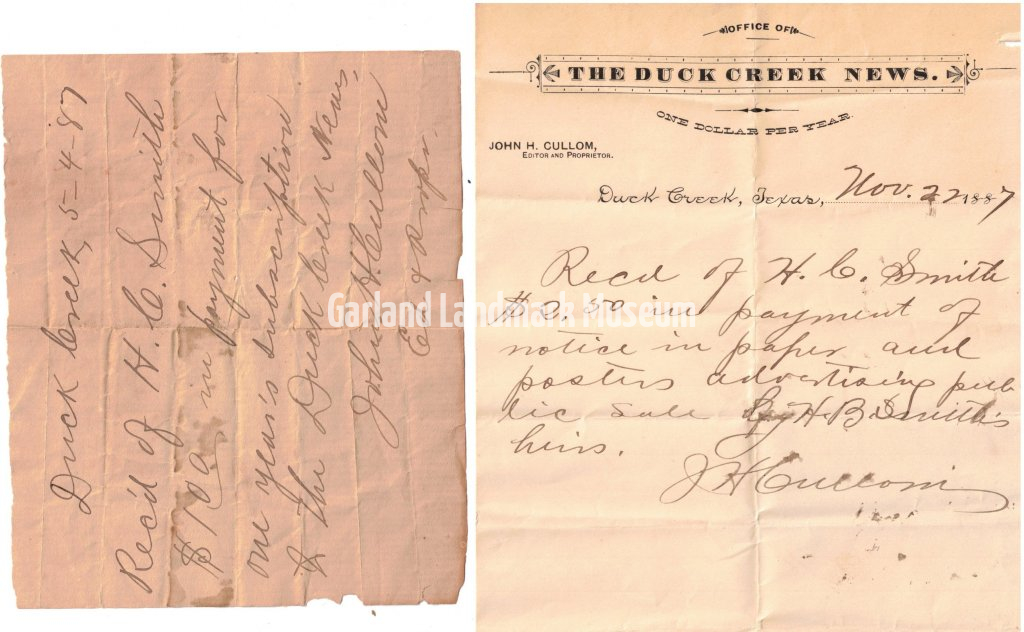 Duck Creek, 5-4-87
Rec'd of H. C. Smith
in payment for
one year's subscription
to the Duck Creek News.
John H Cullom
Ed & Prop'r.
OFFICE OF
THE DUCK CREEK NEWS.
ONE DOLLAR PER YEAR.
JOHN H. CULLOM,
EDITOR AND PROPRIETOR.
Duck Creek, Texas, Nov. 22 1887
Recd of H. C. Smith
in payment of
notice in paper and
posters advertising pub
lic sale by H B Smith's
heirs.
J H Cullom
Garland Landmark Museum